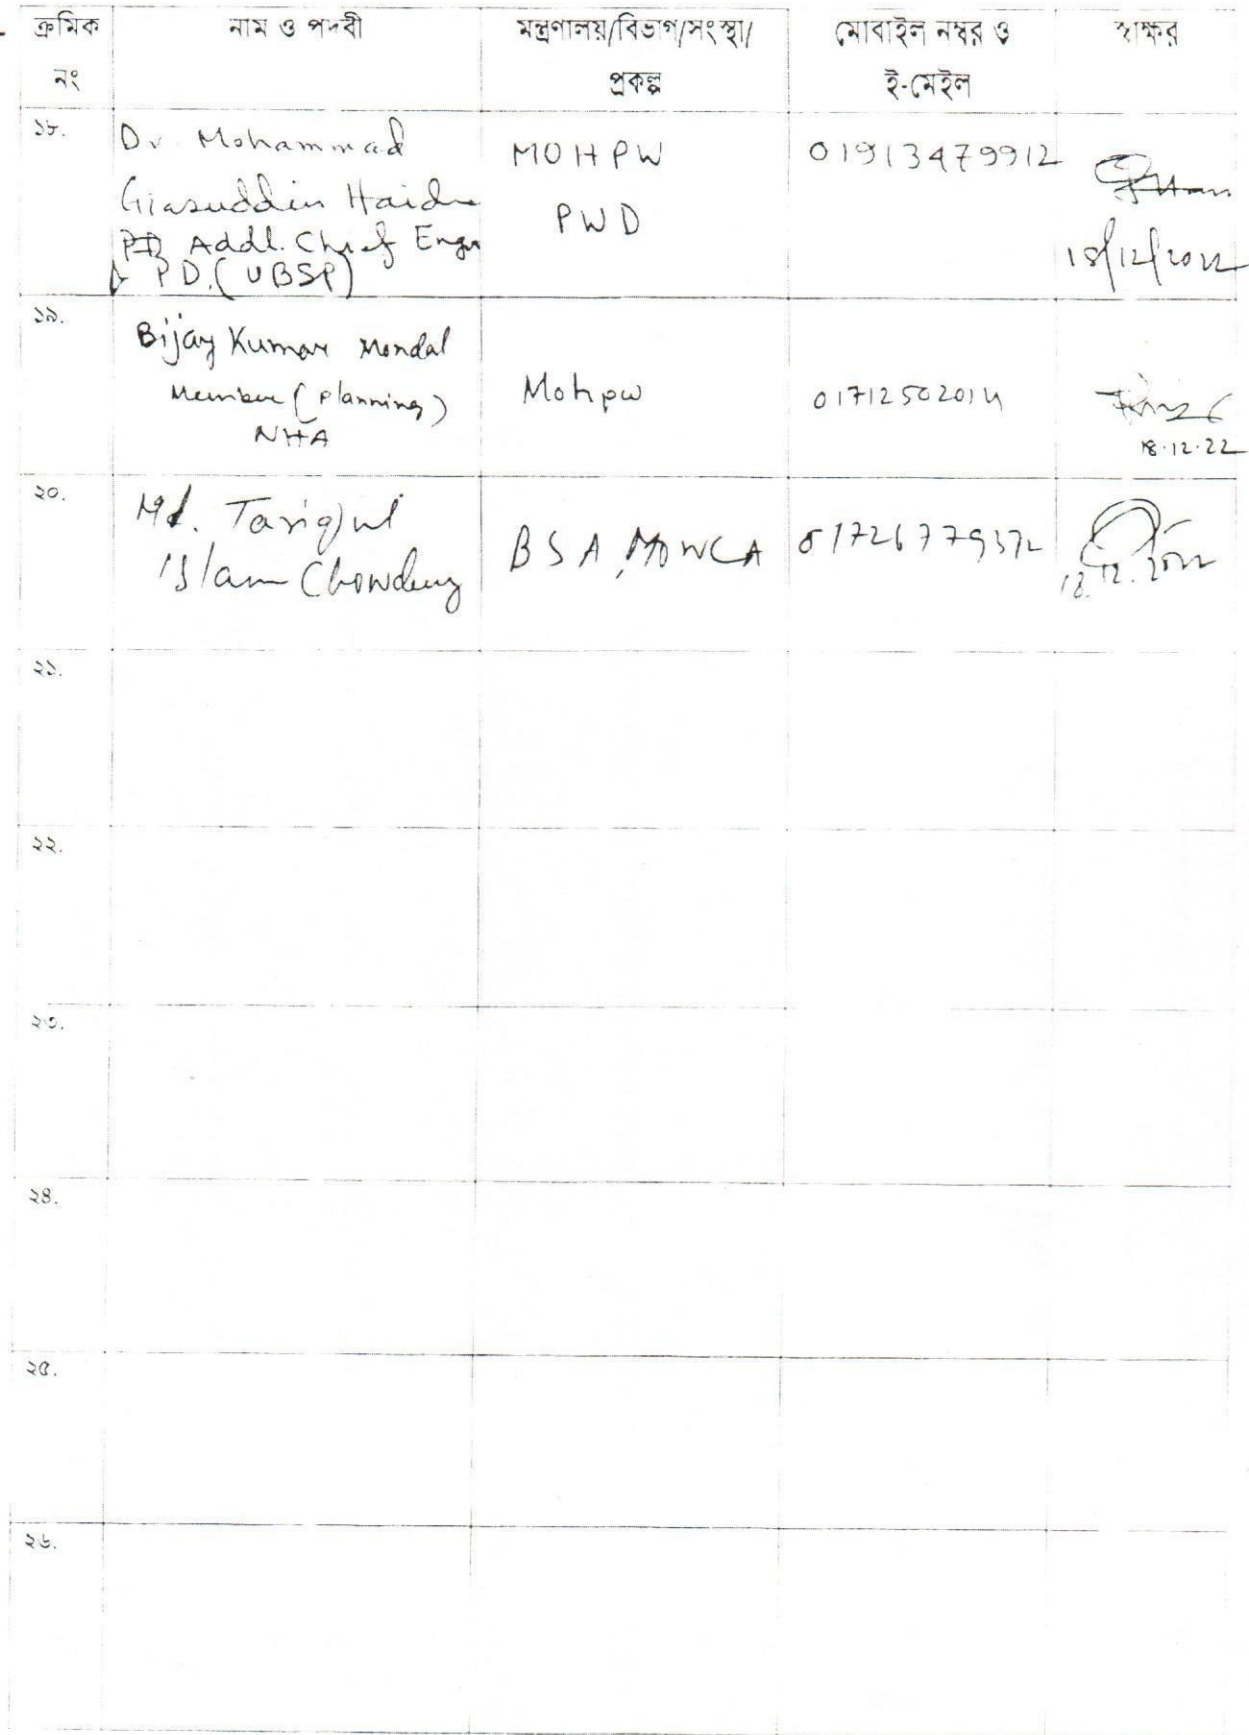 ক্রমিক নং
নাম ও পদবী
মন্ত্রণালয়/বিভাগ/সংস্থা/
প্রকল্প
মোবাইল নম্বর ও
ই-মেইল
স্বাক্ষর
১৮.
Dr. Mohammad
Giasuddin Haider
Addl. Chief Engr
& PD.(UBSP)
MOHPW
PWD
01913479912
18/12/2022
১৯.
Bijay Kumar Mondal
Member (Planning)
NHA
Mohpw
01712502014
18.12.22
২০.
Md. Tariqul
Islam Chowdury
BSA, MOWCA
01726779372
18.12.2022
২১.
২২.
২৩.
২৪.
২৫.
২৬.